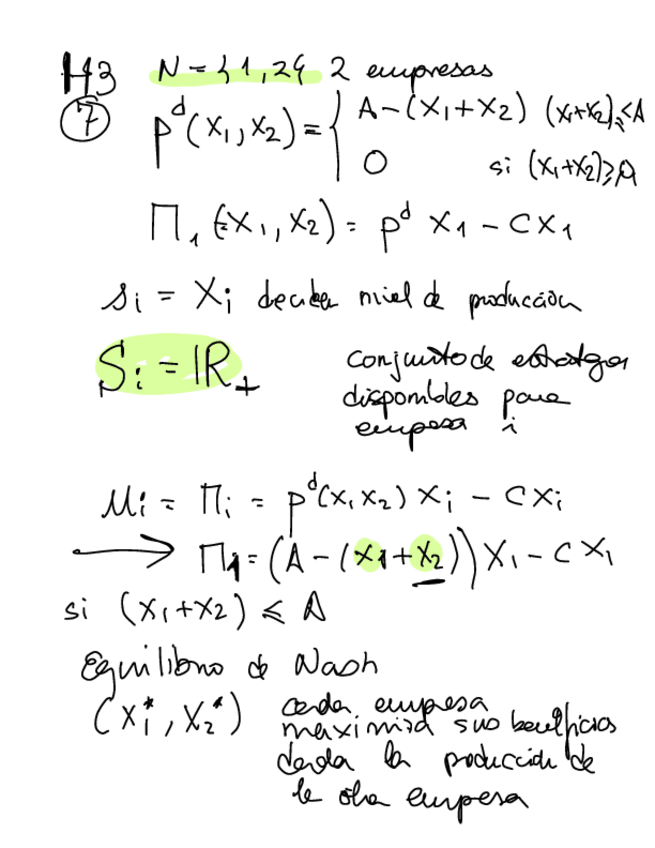 H3 N = {1,2} 2 empresas
⑦ p^d(x₁,x₂) = { A-(x₁+x₂) (x₁+x₂)≤A
0 si (x₁+x₂)≥A
Π₁(x₁,x₂) = p^d x₁ - cx₁
si = xi decidir nivel de producción
Si = ℝ₊ conjunto de estrategias
disponibles para
empresa i
ui = Πi = p^d(x₁x₂) xi - cxi
→ Π₁ = (A-(x₁+x₂))x₁ - cx₁
si (x₁+x₂) ≤ A
Equilibrio de Nash
(x₁*, x₂*) cada empresa
maximiza sus beneficios
dada la producción de
la otra empresa